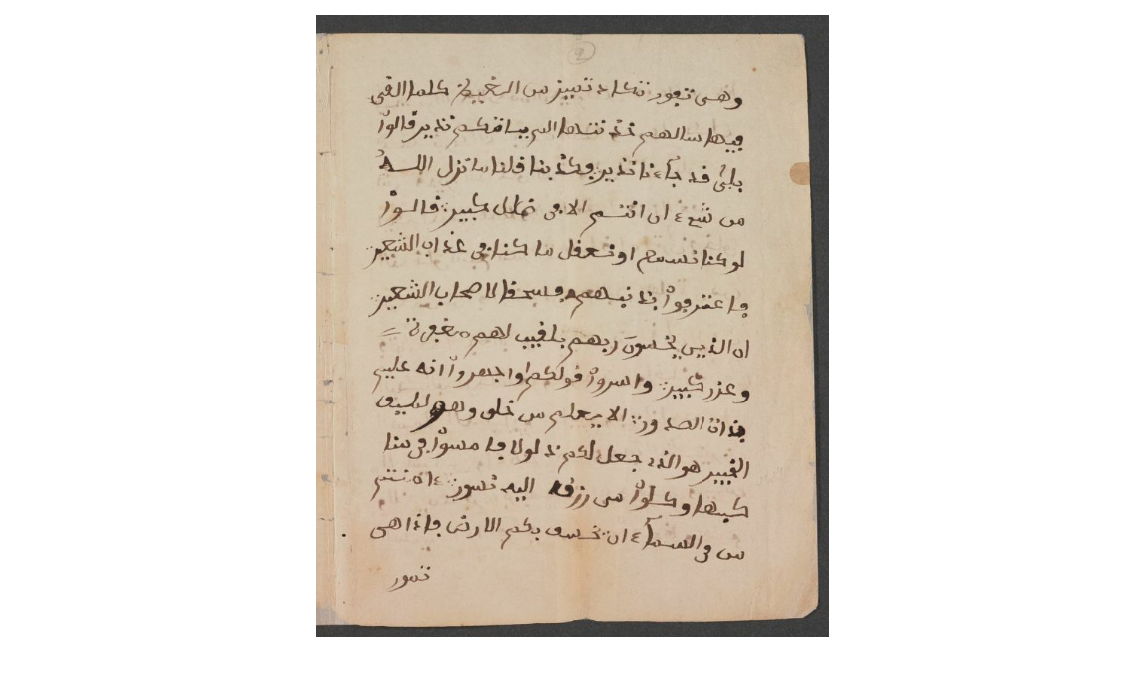 9
وهى تفور تكاد تميز من الغيظ كلما القى
فيها سالهم خزنتها الم ياتكم نذير قالوا
بلى قد جاءنا نذير فكذبنا قلنا ما نزل الله
من شىء ان انتم الا فى ضلل كبير قالوا
لو كنا نسمع او نعقل ما كنا فى عذاب الشعير
فاعترفوا بذنبهم فسحقا لاصحاب الشعير
ان الذين يخشون ربهم بلغيب لهم مغفرة
وعزر كبير واسروا قولكم او اجهروا انه عليم
بذات الصدور الا يعلم من خلق وهو لطيف
الخبير هو الذى جعل لكم ذلولا فامسوا فى منا
كبها وكلوا من رزقه اليه نسور ءان نتم
من فى السماء ان تخسف بكم الارض فاذا هى
تمور